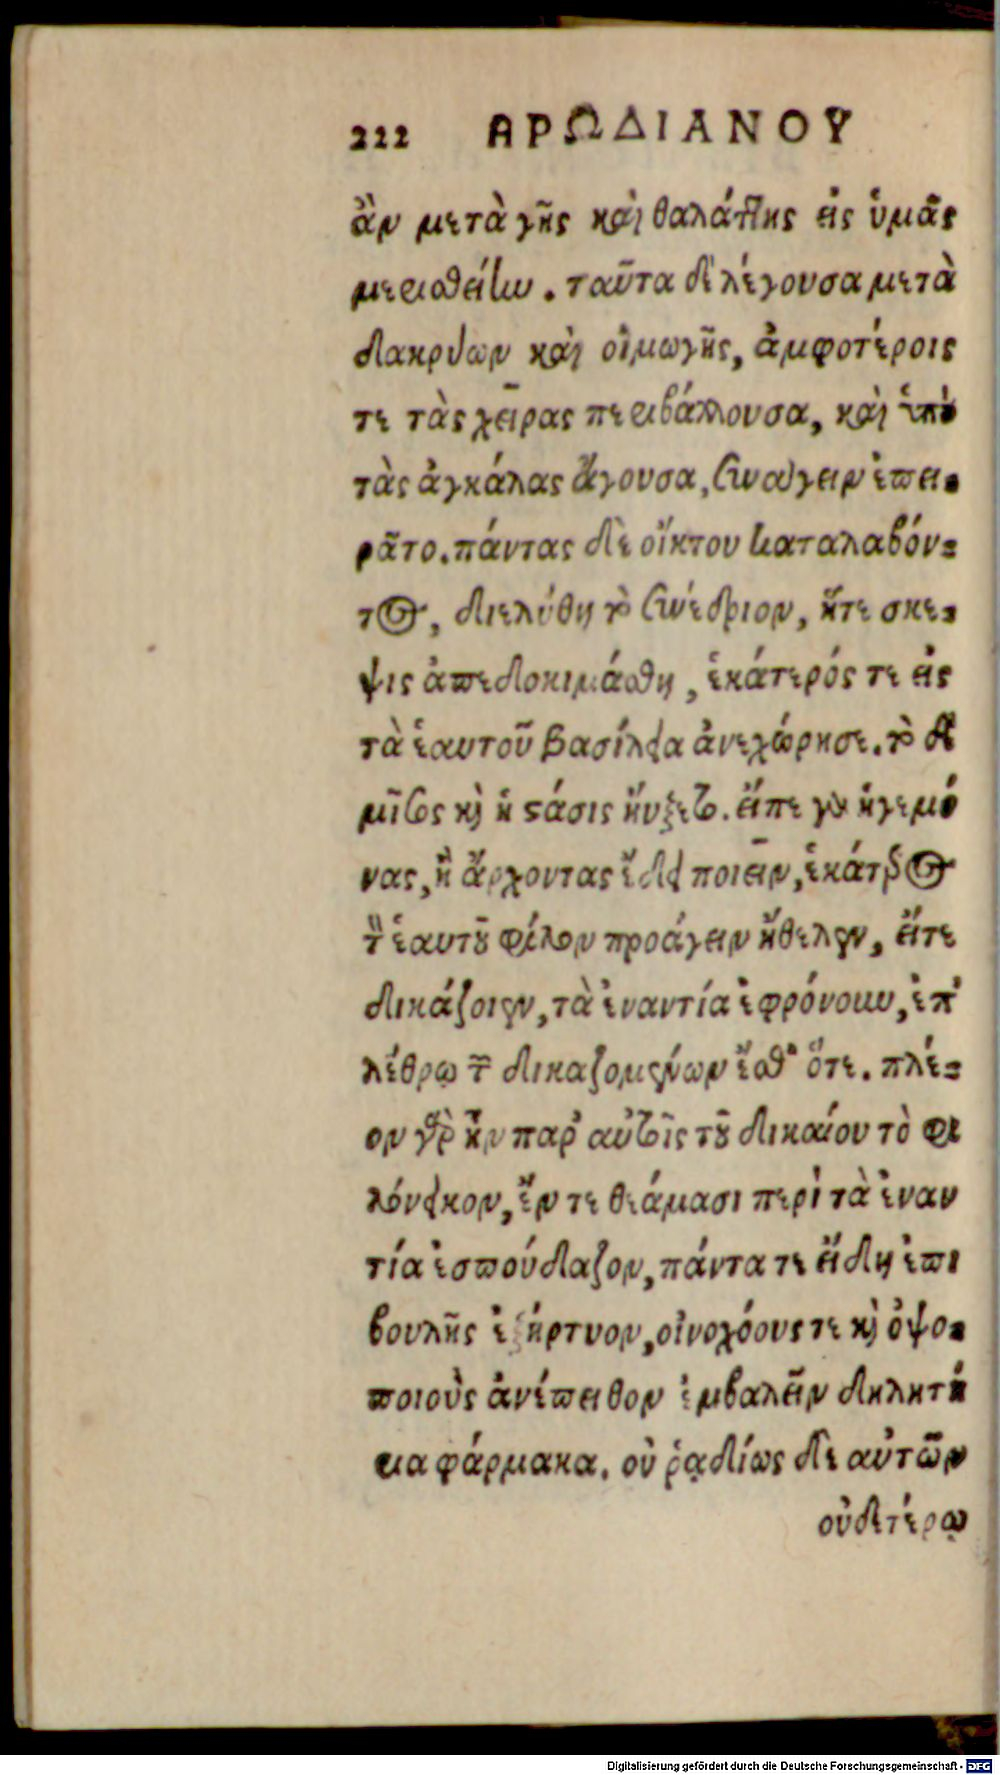 222 ΗΡΩΔΙΑΝΟΥ
ἂν μετὰ γῆς καὶ θαλάττης εἰς ὑμᾶς
μερισθείην. ταῦτα δὲ λέγουσα μετὰ
δακρύων καὶ οἰμωγῆς, ἀμφοτέροις
τε τὰς χεῖρας περιβάλλουσα, καὶ ὑπὸ
τὰς ἀγκάλας ἄγουσα, συνάγειν ἐπει-
ρᾶτο. πάντας δὲ οἴκτου καταλαβόν-
τος, διελύθη τὸ συνέδριον, ἥτε σκέ-
ψις ἀπεδοκιμάσθη, ἑκάτερός τε εἰς
τὰ ἑαυτοῦ βασίλεια ἀνεχώρησε. τὸ δὲ
μῖσος καὶ ἡ στάσις ηὔξετο. εἴτε γὰρ ἡγεμό
νας, ἢ ἄρχοντας ἔδει ποιεῖν, ἑκάτερος
τὸν ἑαυτοῦ φίλον προάγειν ἤθελεν, εἴτε
δικάζοιεν, τὰ ἐναντία ἐφρόνουν, ἐπ'
λέθρῳ τῶν δικαζομένων ἔσθ' ὅτε. πλέ-
ον γὰρ ἦν παρ' αὐτοῖς τοῦ δικαίου τὸ φι
λόνεικον, ἔν τε θεάμασι περὶ τὰ ἐναν
τία ἐσπούδαζον, πάντα τε εἴδη ἐπι
βουλῆς ἐξήρτυον, οἰνοχόους τε καὶ ὀψο-
ποιοὺς ἀνέπειθον ἐμβαλεῖν δηλητή
ρια φάρμακα. οὐ ῥᾳδίως δὲ αὐτῶν
οὐδετέρῳ
Digitalisierung gefördert durch die Deutsche Forschungsgemeinschaft - DFG